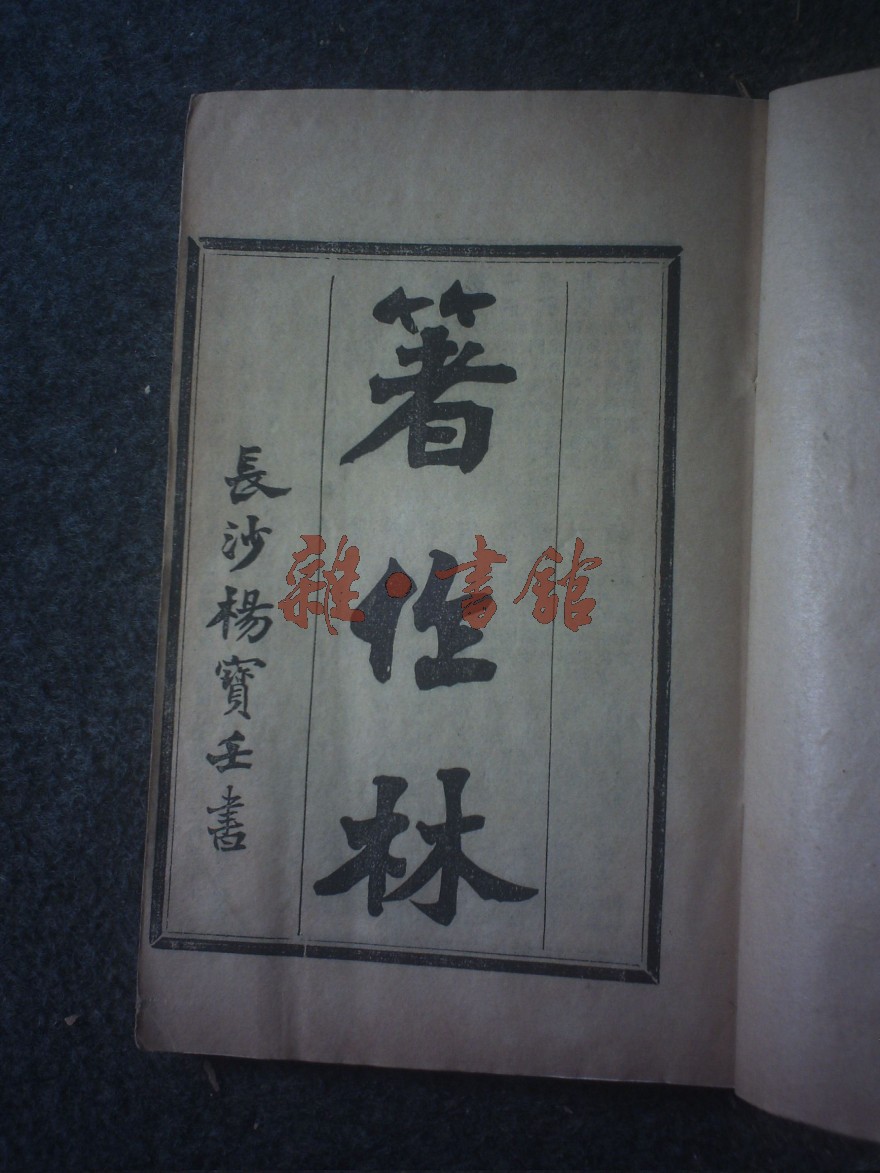 箸作林
長沙楊寶壬書
雜·書館